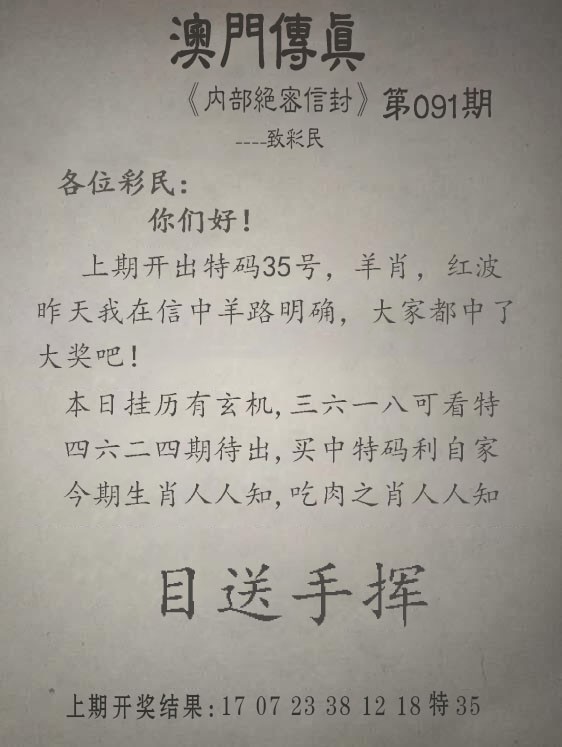 澳門傳眞
《内部絕密信封》第091期
----致彩民
各位彩民:
你们好!
上期开出特码35号，羊肖，红波
昨天我在信中羊路明确，大家都中了
大奖吧!
本日挂历有玄机,三六一八可看特
四六二四期待出,买中特码利自家
今期生肖人人知,吃肉之肖人人知
目送手挥
上期开奖结果:17 07 23 38 12 18特35